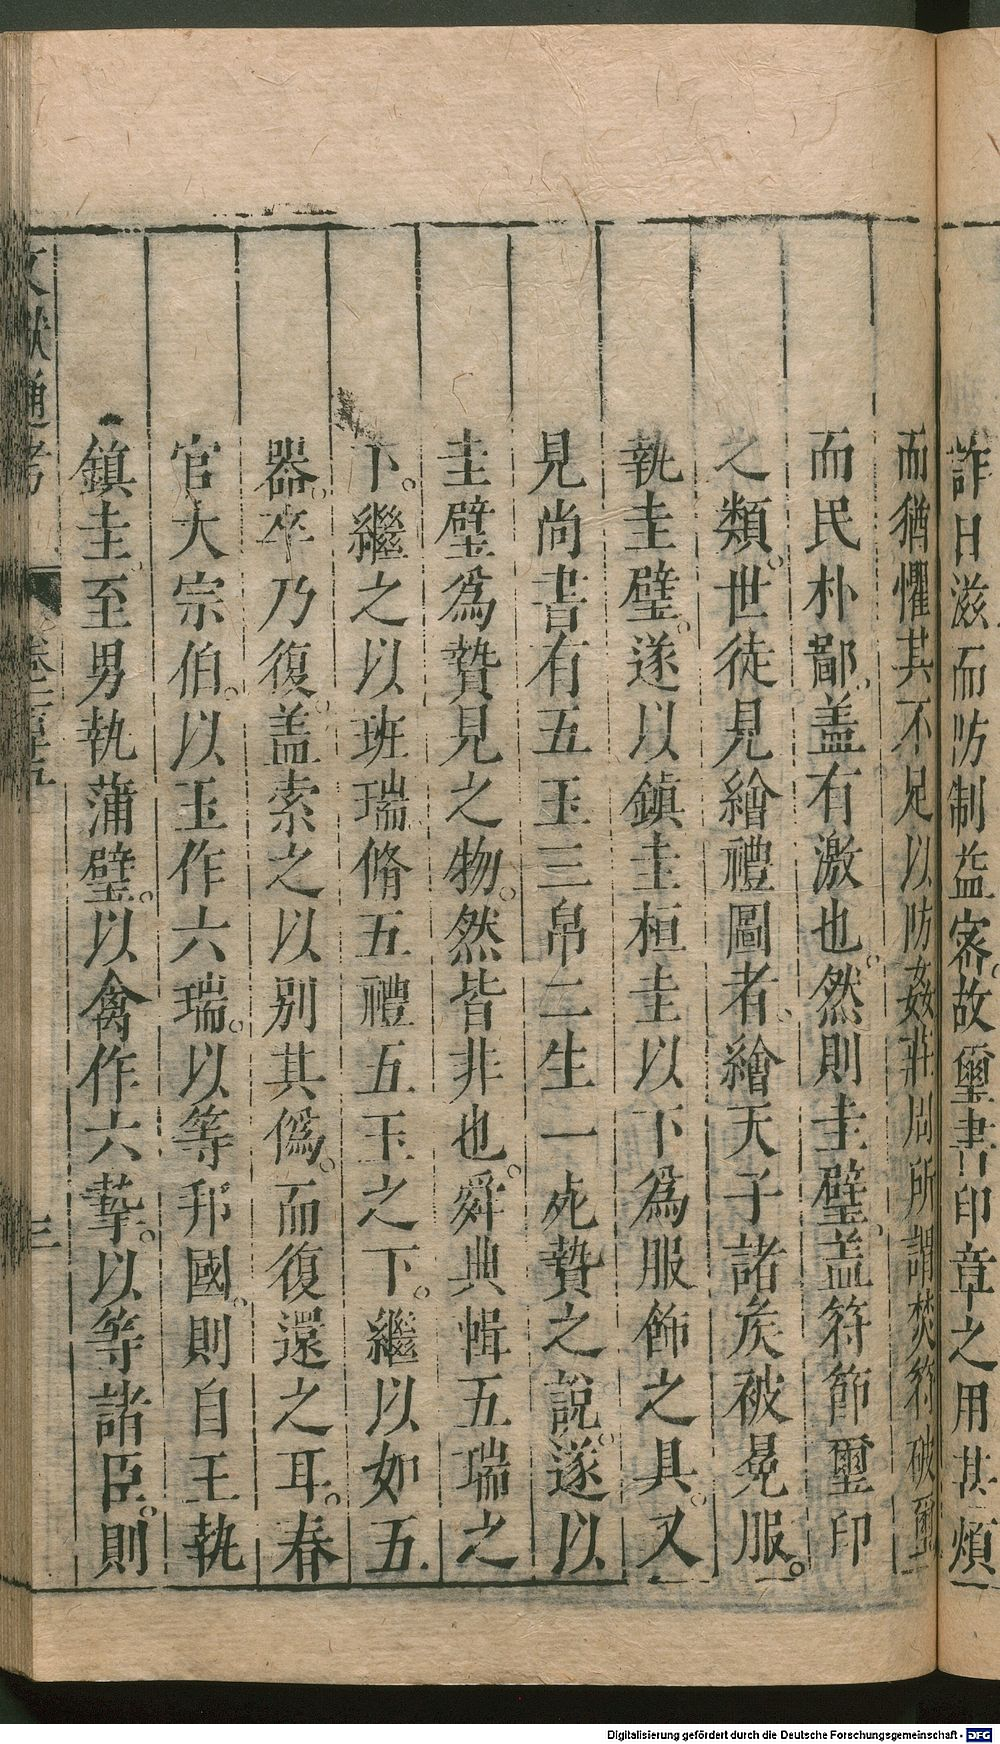 詐日滋而防制益密。故璽書印章之用其煩
而猶懼其不足以防姦莊周所謂焚符破璽
而民朴鄙。盖有激也。然則圭璧。盖符節璽印
之類。世徒見繪禮圖者。繪天子諸矦被冕服。
執圭璧。遂以鎮圭桓圭以下爲服飾之具。又
見尚書有五玉三帛二生一死贄之說。遂以
圭璧爲贄見之物。然皆非也。舜典輯五瑞之
下。繼之以班瑞脩五禮五玉之下。繼以如五
器。卒乃復。盖索之以别其僞。而復還之耳。春
官大宗伯。以玉作六瑞。以等邦國。則自王執
鎮圭。至男執蒲璧。以禽作六摯。以等諸臣。則
文獻通考
三
Digitalisierung gefördert durch die Deutsche Forschungsgemeinschaft - DFG